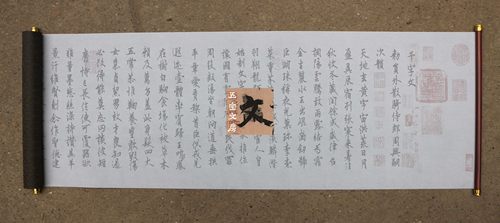 千字文
敕員外散騎侍郎周興嗣
次韻
天地玄黃宇宙洪荒日月
盈昃辰宿列張寒來暑往
秋收冬藏閏餘成歲律呂
調陽雲騰致雨露結為霜
金生麗水玉出崑岡劍號
巨闕珠稱夜光果珍李柰
菜重芥鱗潛
羽翔龍人皇
始制文字推位
讓國有伐罪
周發殷湯坐朝問道垂拱
平章愛育黎首臣伏戎羌
遐邇壹體率賓歸王鳴鳳
在樹白駒食場化被草木
賴及萬方蓋此身髮四大
五常恭惟鞠養豈敢毀傷
女慕貞絜男效才良知過
必改得能莫忘罔談彼短
靡恃己長信使可覆器欲
難量墨悲絲染詩讚羔羊
景行維賢剋念作聖德建
文
文房